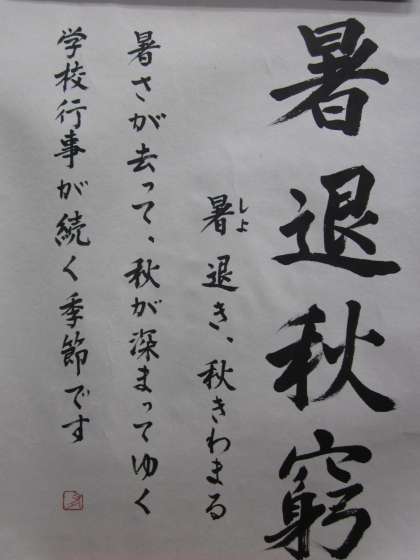 暑退秋窮
暑退き、秋きわまる
しよ
暑さが去って、秋が深まってゆく
学校行事が続く季節です